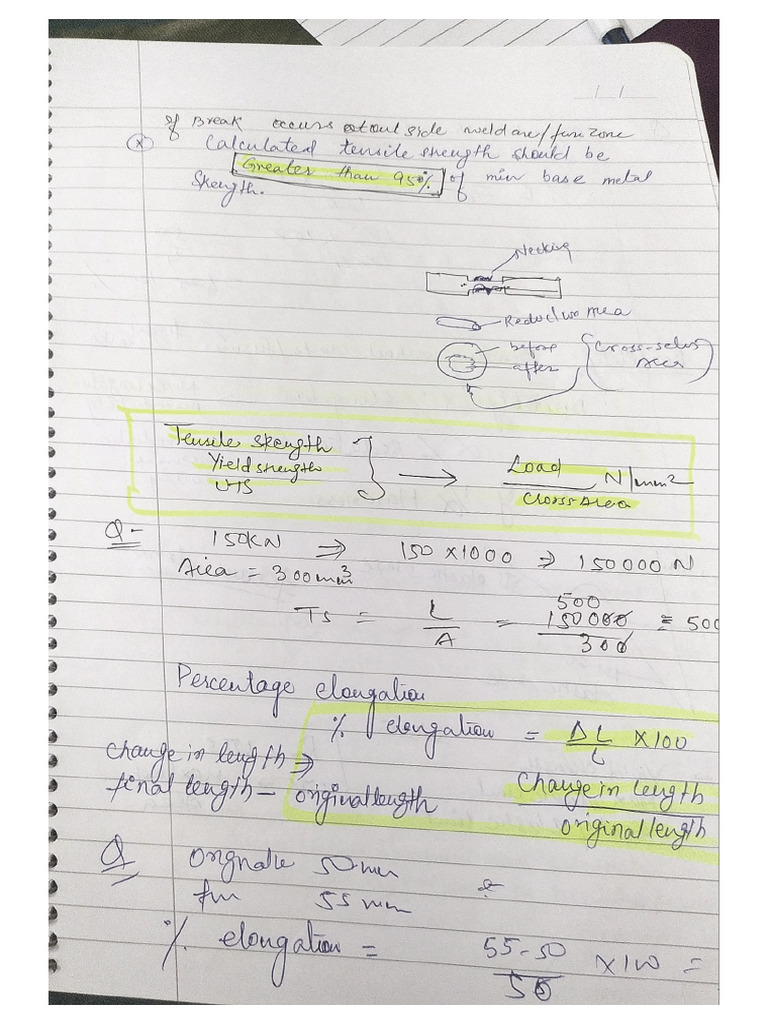 If Break occurs at out side weld are/fusn zone
(x) Calculated tensile strength should be
Greater than 95% of min base metal
Strength.
Necking
Reduction Area
before
after
Cross-
Area
Tensile Strength
Yield strength
UTS
→ Load / Cross Area N/mm2
Q- 150KN ⇒ 150 x 1000 ⇒ 150000 N
Area = 300mm3
Ts = L/A = 150000/300 = 500
500
Percentage elongation
% elongation = ΔL/L x 100
change in length ⇒
final length - original length
Change in Length / original length
Q 50 mm
55 mm
% elongation = 55-50/50 x 100 =